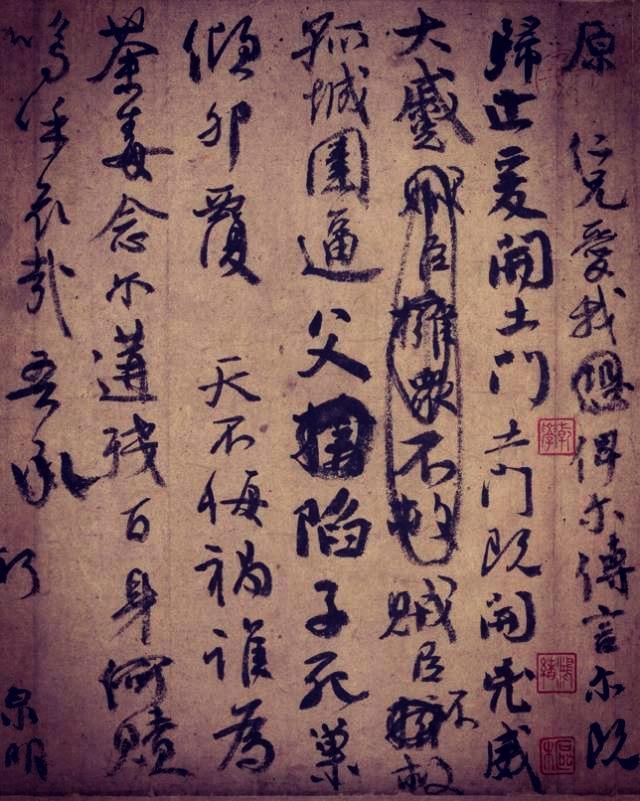 原 仁兄愛我恐俾尔傳言尔既
歸止爰開土門土門既開兇威
大蹙賊臣擁眾不救賊臣不救
孤城圍逼父陷子死巢
傾卵覆 天不悔禍誰為
荼毒念尔遘殘百身何贖
嗚乎哀哉吾承
泉明